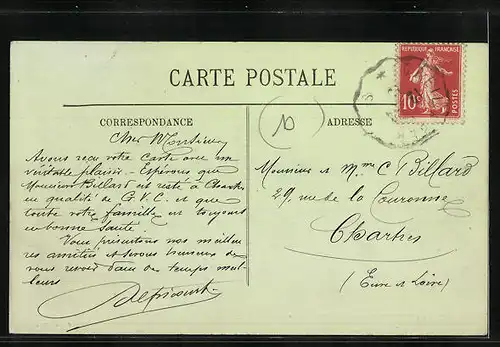 CARTE POSTALE
CORRESPONDANCE
ADRESSE
REPUBLIQUE FRANÇAISE
10c
POSTES
Cher Monsieur
Avons reçu votre Carte avec un
véritable plaisir. Espérons que
Monsieur Billard est resté à Chartres
en qualité de G.V.C. et que
toute votre famille est toujours
en bonne santé
Vous présentons nos meilleu
res amitiés et serons heureux de
vous revoir dans des temps meil
leurs
Monsieur et Mme C Billard
29, rue de la Couronne
Chartres
(Eure et Loire)